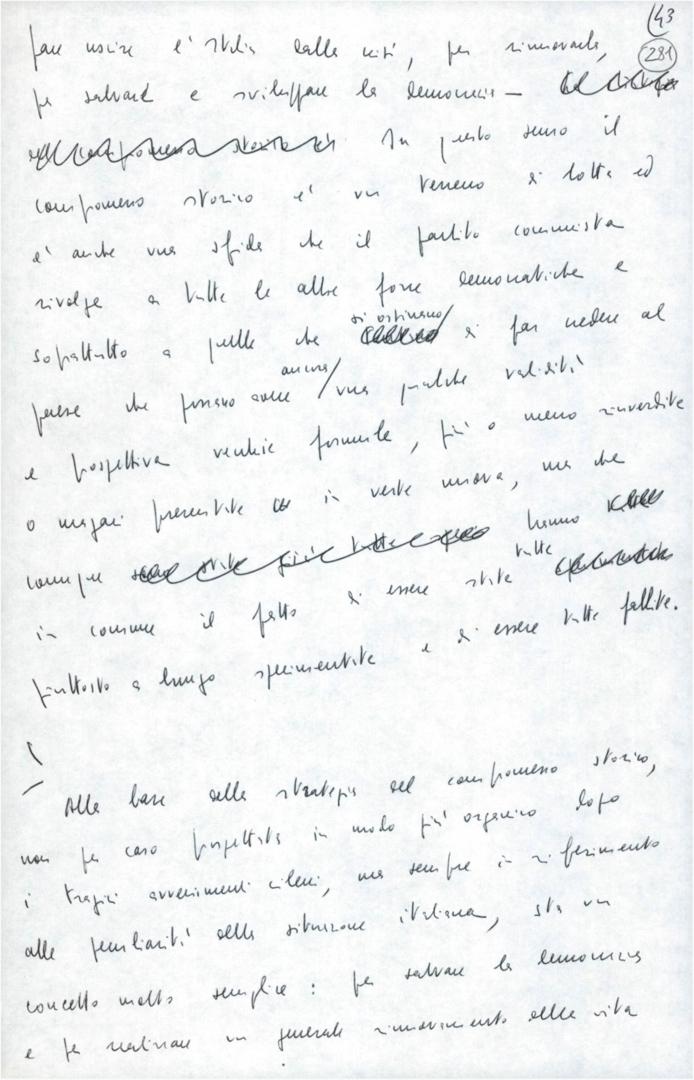 43
281
fare uscire l'Italia dalla crisi, per rinnovarla,
per salvare e sviluppare la democrazia –
In questo senso il
compromesso storico è un terreno di lotta ed
è anche una sfida che il partito comunista
rivolge a tutte le altre forze democratiche e
si ostinano
soprattutto a quelle che a far vedere al
ancora
paese che possano avere una qualche validità
e prospettiva vecchie formule, più o meno rinverdite
o magari presentate in veste nuova, ma che
comunque hanno
tutte
in comune il fatto di essere state
piuttosto a lungo sperimentate e di essere tutte fallite.
Alla base della strategia del compromesso storico,
non per caso prospettata in modo più organico dopo
i tragici avvenimenti cileni, ma sempre in riferimento
alle peculiarità della situazione italiana, sta un
concetto molto semplice: per salvare la democrazia
e per realizzare un generale rinnovamento della vita